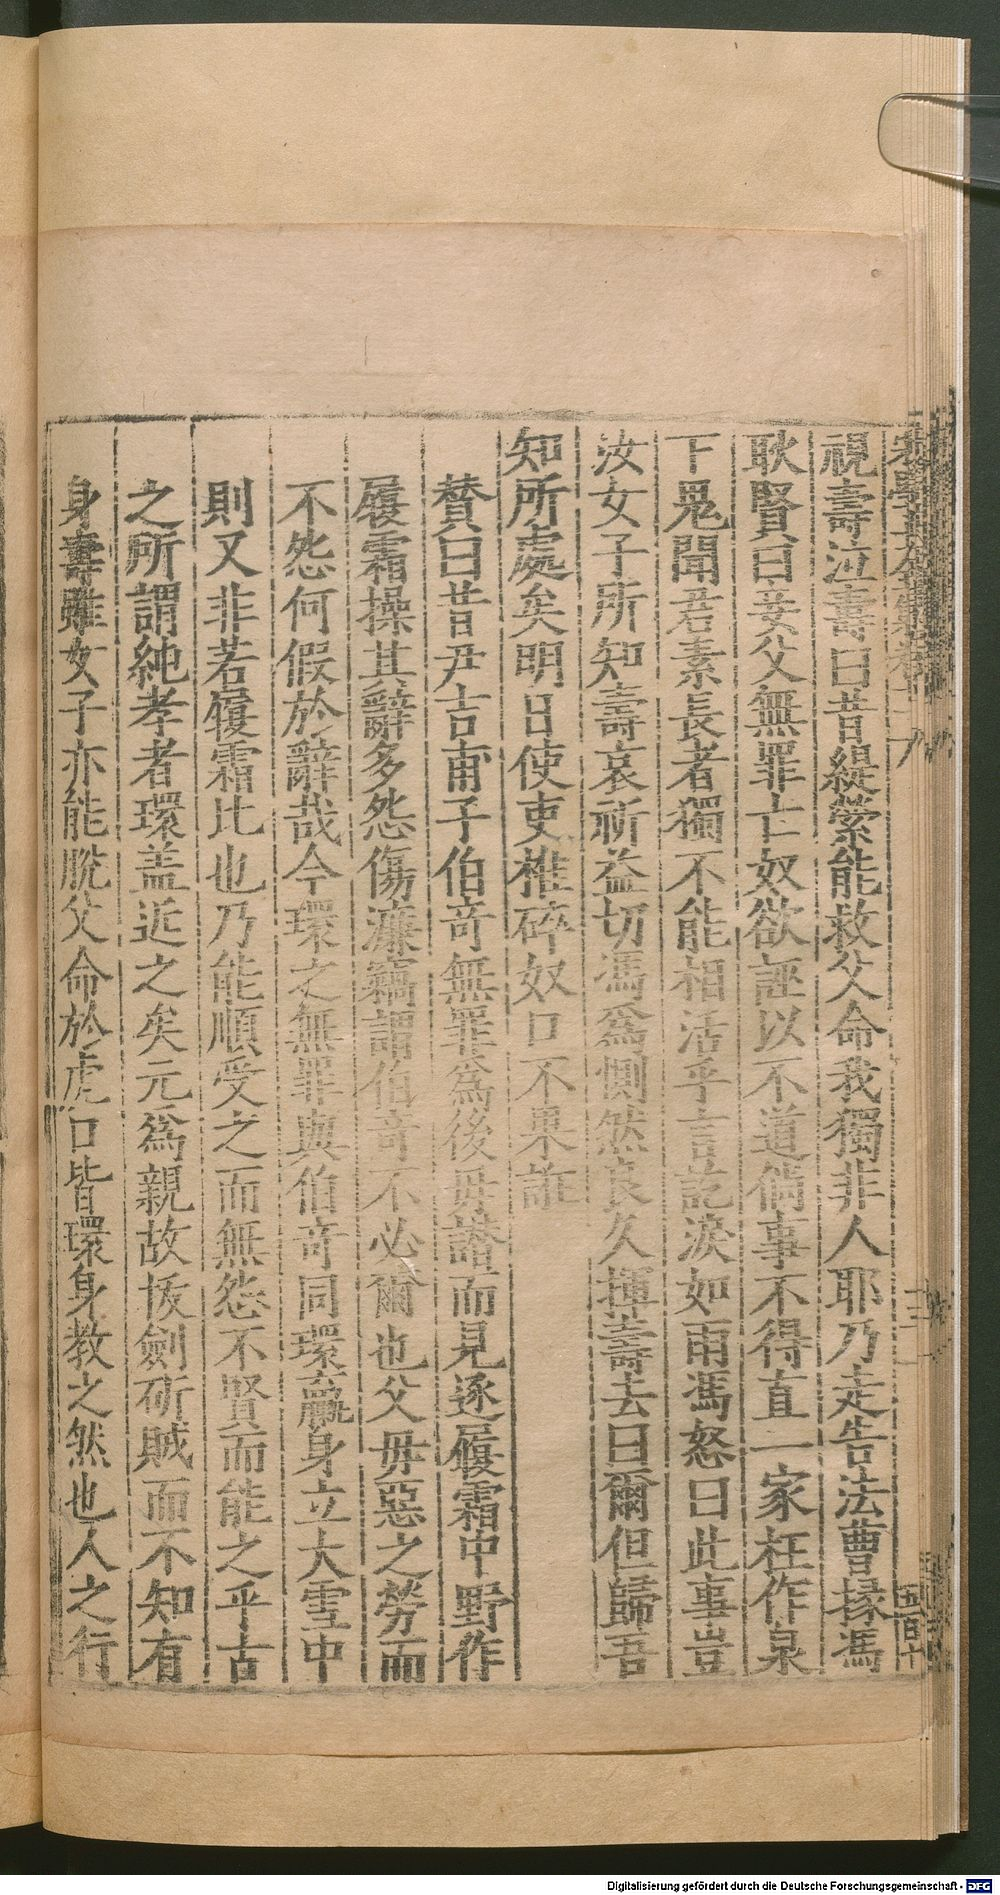 視壽泣壽曰昔緹縈能救父命我獨非人耶乃走告法曹掾馮
耿賢曰妾父無罪亡奴欲誣以不道倘事不得直一家枉作泉
下鬼聞君素長者獨不能相活乎言訖淚如雨馮怒曰此事豈
汝女子所知壽哀祈益切馮爲惻然良久揮壽去曰爾但歸吾
知所處矣明日使吏椎碎奴口不果訴
賛曰昔尹吉甫子伯奇無罪爲後毋譖而見逐履霜中野作
履霜操其辭多怨傷濂竊謂伯奇不必爾也父毋惡之勞而
不怨何假於辭哉今環之無罪與伯奇同環臝身立大雪中
則又非若履霜比也乃能順受之而無怨不賢而能之乎古
之所謂純孝者環盖近之矣元爲親故拔劍斫賊而不知有
身壽雖女子亦能脫父命於虎口皆環身教之然也人之行
宋學士全集卷十八
五百十
Digitalisierung gefördert durch die Deutsche Forschungsgemeinschaft - DFG